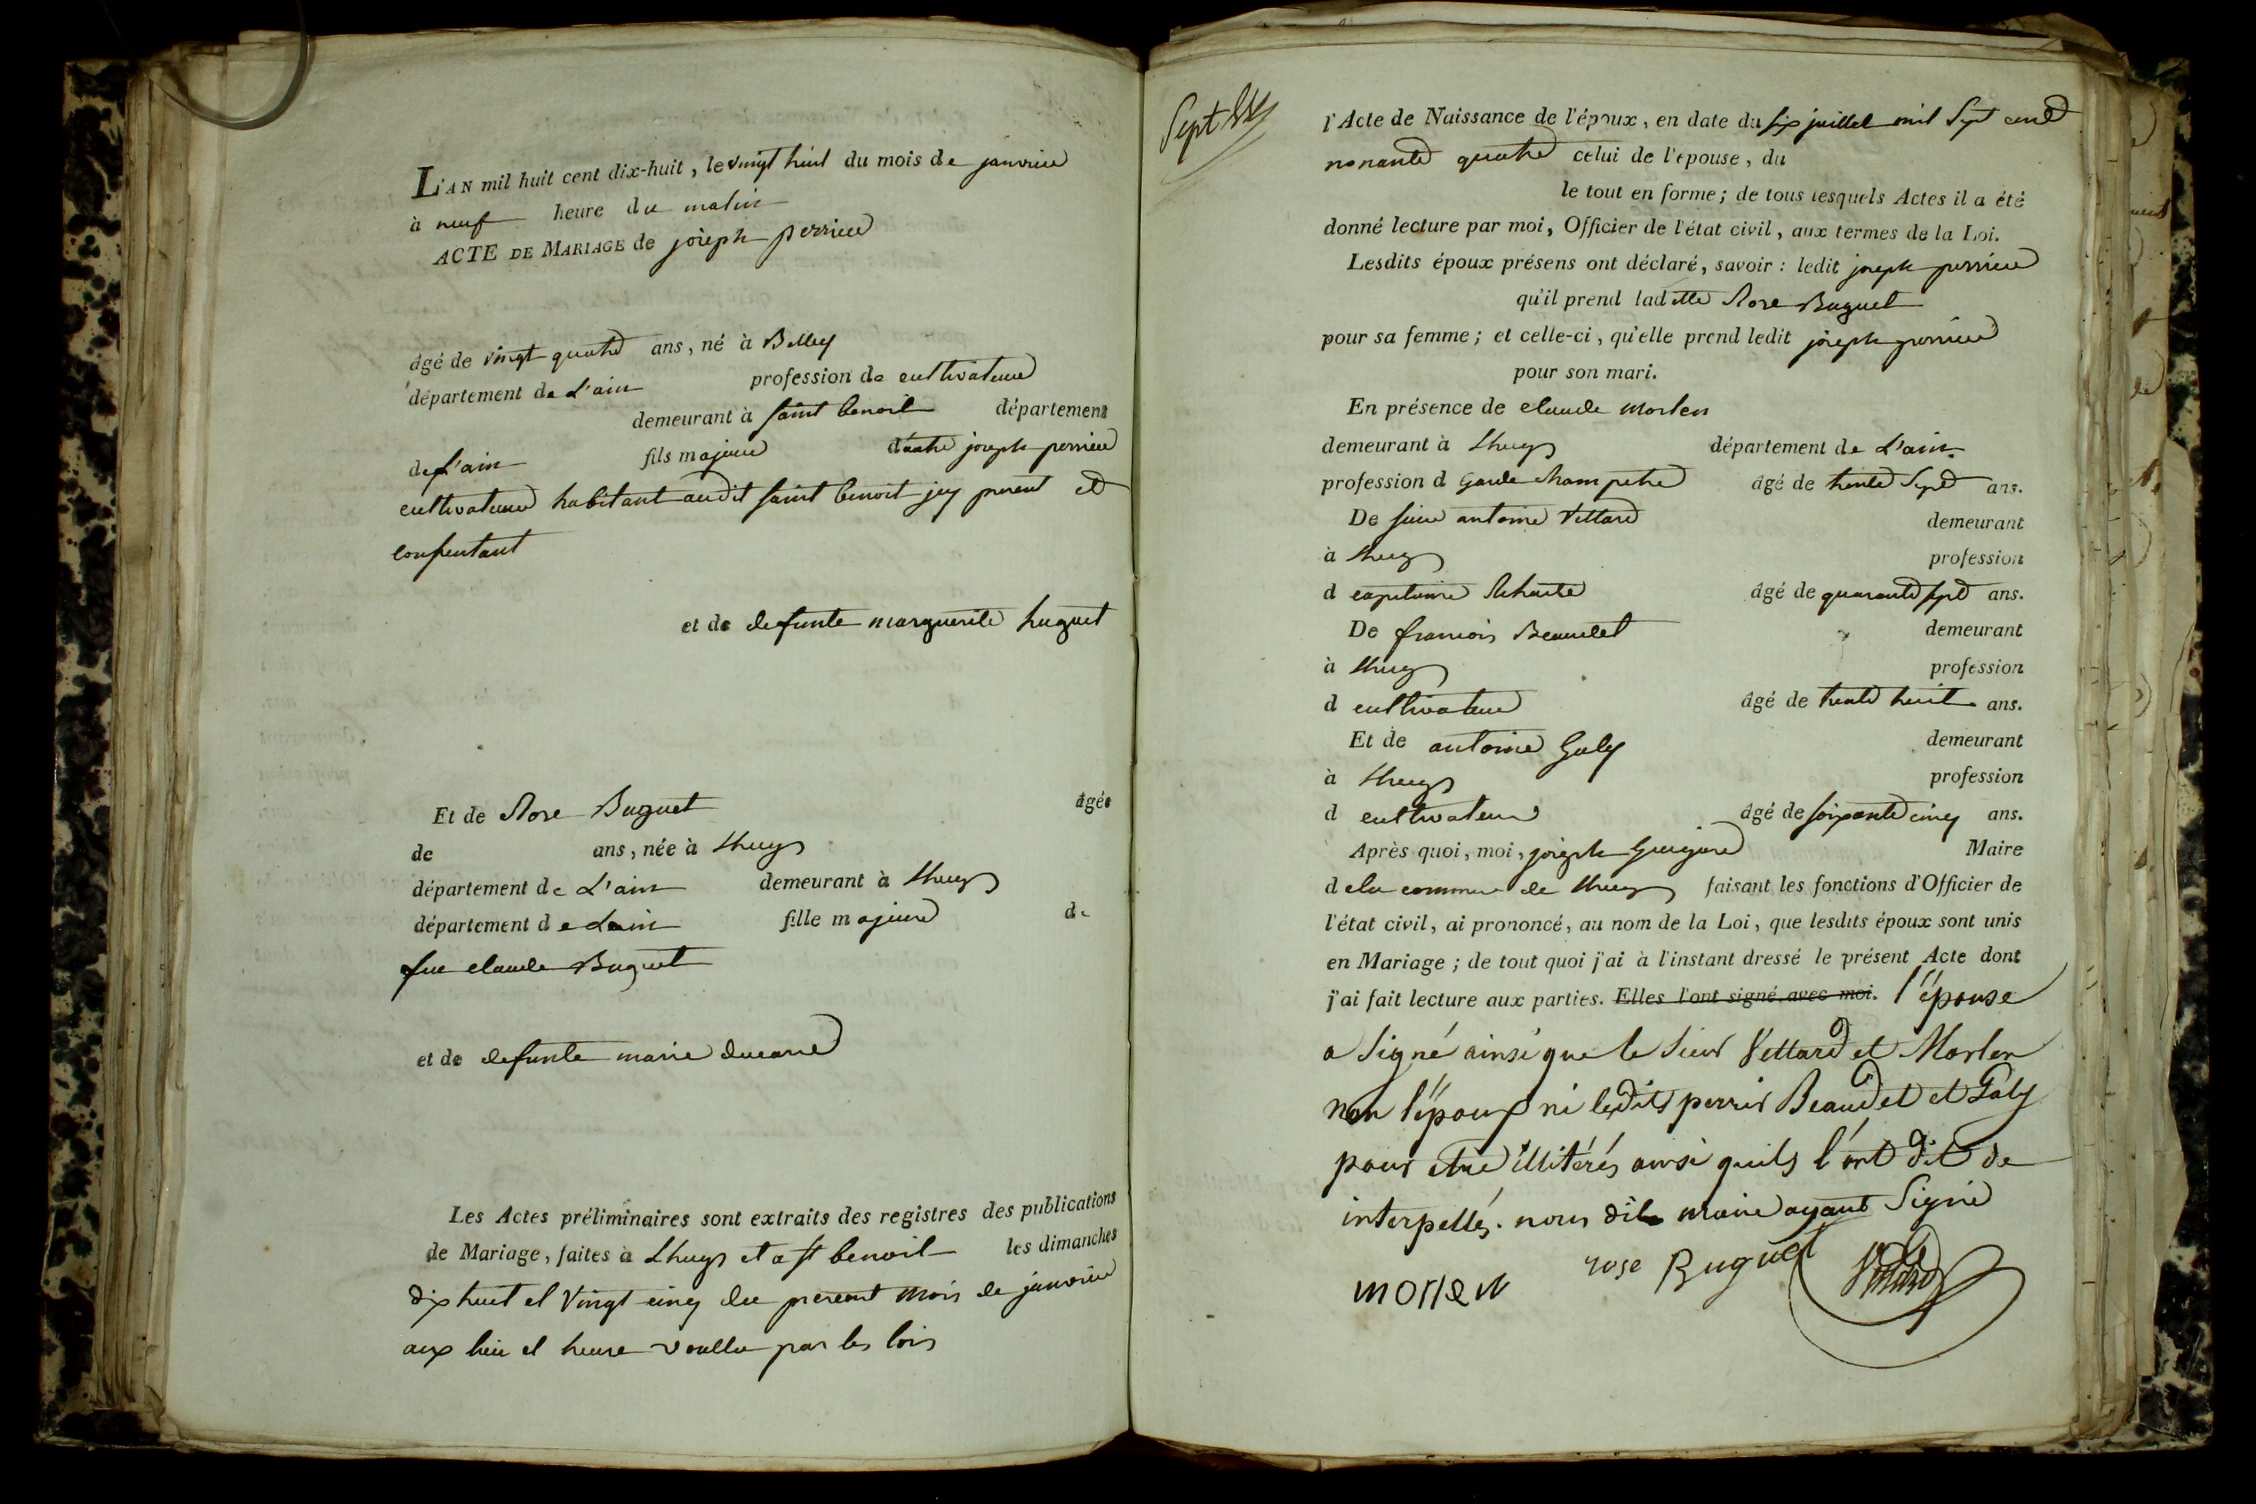 L'AN mil huit cent dix-huit, le vingt huit du mois de janvier
à neuf heure du matin
ACTE DE MARIAGE de joseph perrier
âgé de vingt quatre ans, né à Belley
département de L'ain profession de cultivateur
demeurant à saint benoit département
de L'ain fils majeur d'autre joseph perrier
cultivateur habitant audit saint benoit icy present et
consentant
et de defunte marguerite huguet
Et de Rose Buguet âgée
de ans, née à Lhuys
département de L'ain demeurant à Lhuys
département de Lain fille majeure de
feu claude Buguet
et de defunte marie ducarre
Les Actes préliminaires sont extraits des registres des publications
de Mariage, faites à Lhuys et a st benoit les dimanches
dix huit et vingt cinq du present mois de janvier
aux lieu et heure voullu par les lois
Sept
l'Acte de Naissance de l'époux, en date du six juillet mil sept cent
nonante quatre celui de l'épouse, du
le tout en forme; de tous lesquels Actes il a été
donné lecture par moi, Officier de l'état civil, aux termes de la Loi.
Lesdits époux présens ont déclaré, savoir : ledit joseph perrier
qu'il prend ladite Rose Buguet
pour sa femme; et celle-ci, qu'elle prend ledit joseph perrier
pour son mari.
En présence de claude morlen
demeurant à Lhuys département de L'ain
profession d garde champetre âgé de trente sept ans.
De sieur antoine Vettard demeurant
à Lhuys profession
d capitaine Retraite âgé de quarante sept ans.
De francois Beaudet demeurant
à Lhuys profession
d cultivateur âgé de trente huit ans.
Et de antoine Galy demeurant
à Lhuys profession
d cultivateur âgé de soixante cinq ans.
Après quoi, moi, joseph Maire
de la commune de Lhuys faisant les fonctions d'Officier de
l'état civil, ai prononcé, au nom de la Loi, que lesdits époux sont unis
en Mariage; de tout quoi j'ai à l'instant dressé le présent Acte dont
j'ai fait lecture aux parties. Elles l'ont signé avec moi. l'épouse
a signé ainsi que le sieur Vettard et Morlen
non l'époux ni lesdits perrier Beaudet et Galy
pour etre illitérés ainsi quils l'ont dit de
interpellés. nous dit maire ayant signé
morlen rose Buguet Vettard